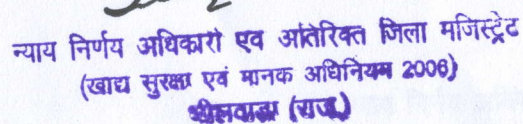 न्याय निर्णय अधिकारी एव अतिरिक्त जिला मजिस्ट्रेट
(खाद्य सुरक्षा एवं मानक अधिनियम 2006)
भीलवाडा (राज.)